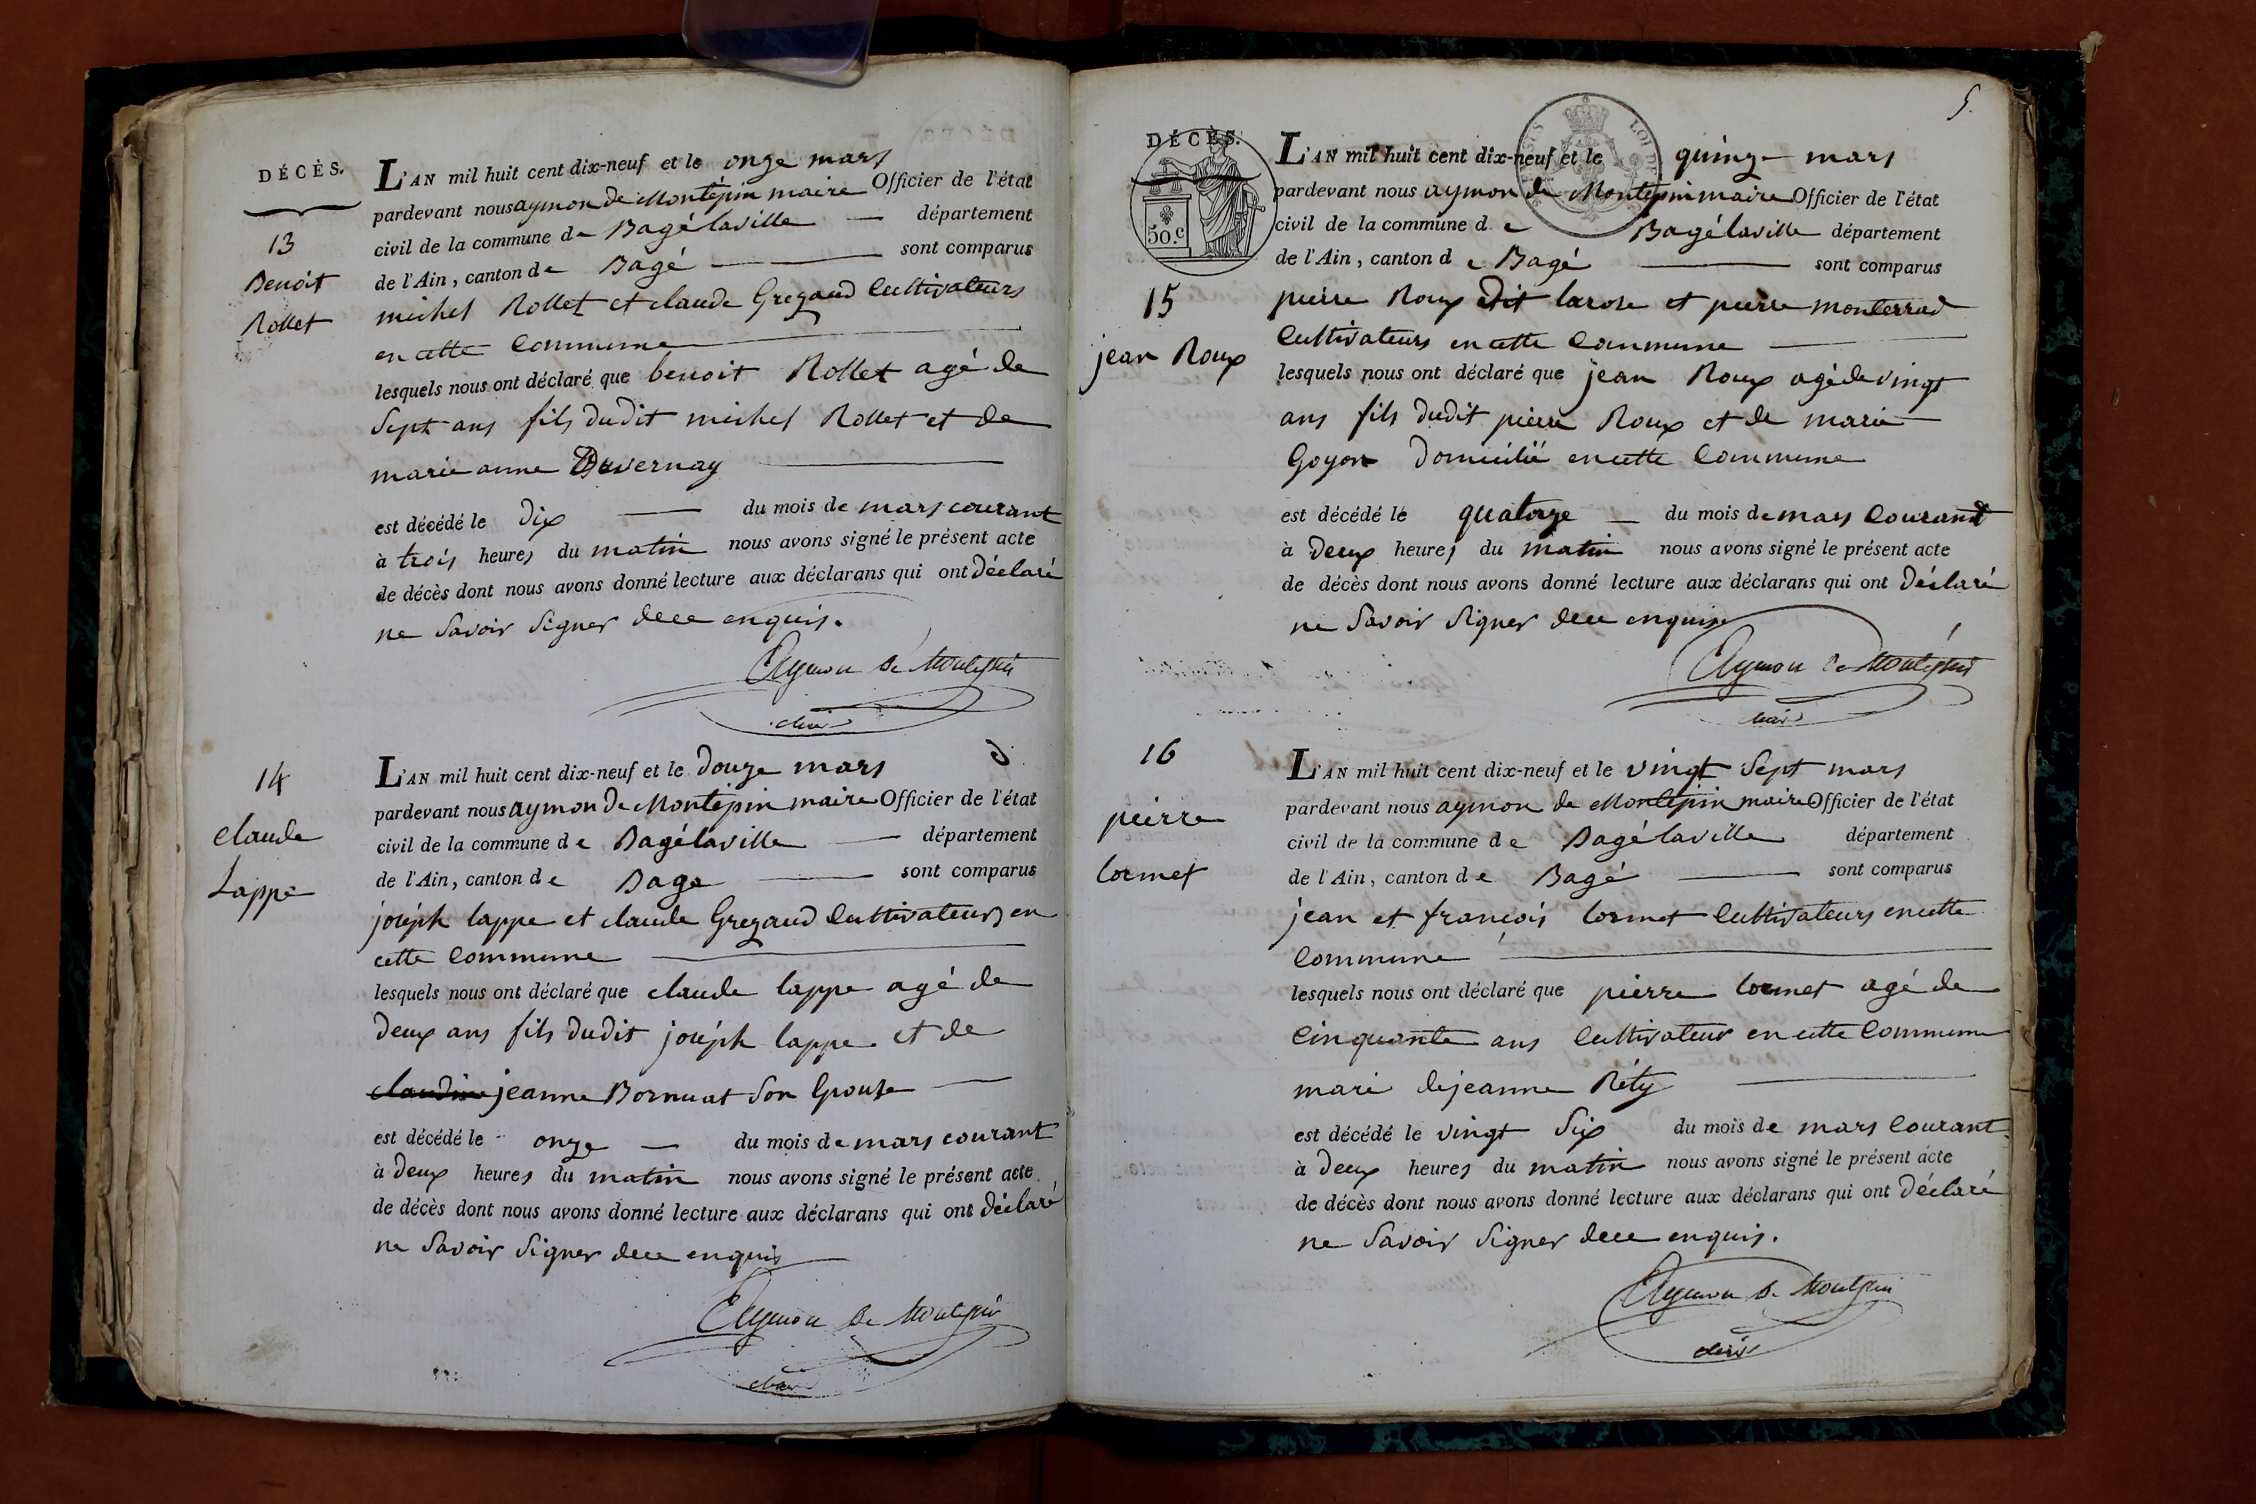 DÉCÈS.
13
Benoit
Rollet
L'AN mil huit cent dix-neuf et le onze mars
pardevant nous aymon de Montépin maire Officier de l'état
civil de la commune de Bagélaville département
de l'Ain, canton de Bagé sont comparus
michel Rollet et claude Gregaud Cultivateurs
en cette Commune
lesquels nous ont déclaré que benoit Rollet agé de
Sept ans fils dudit michel Rollet et de
marie anne Duvernay
est décédé le dix du mois de mars courant
à trois heures du matin nous avons signé le présent acte
de décès dont nous avons donné lecture aux déclarans qui ont déclaré
ne Savoir Signer de ce enquis.
Aymon de Montépin
maire
14
claude
Lappe
L'AN mil huit cent dix-neuf et le douze mars
pardevant nous aymon de Montépin maire Officier de l'état
civil de la commune de Bagélaville département
de l'Ain, canton de Bage sont comparus
joseph lappe et claude Gregaud Cultivateurs en
cette Commune
lesquels nous ont déclaré que claude lappe agé de
deux ans fils dudit joseph lappe et de
claudine jeanne Bornuat Son Epouse
est décédé le onze du mois de mars courant
à deux heures du matin nous avons signé le présent acte
de décès dont nous avons donné lecture aux déclarans qui ont déclaré
ne Savoir Signer de ce enquis
Aymon de Montépin
maire
5.
DÉCÈS.
50.c
15
jean Roux
L'AN mil huit cent dix-neuf et le quinze mars
pardevant nous aymon de Montépin maire Officier de l'état
civil de la commune de Bagélaville département
de l'Ain, canton de Bagé sont comparus
pierre Roux dit larose et pierre monterrad
Cultivateurs en cette Commune
lesquels nous ont déclaré que jean Roux agé de vingt
ans fils dudit pierre Roux et de marie
Goyon domicilié en cette Commune
est décédé le quatorze du mois de mars Courant
à deux heures du matin nous avons signé le présent acte
de décès dont nous avons donné lecture aux déclarans qui ont déclaré
ne Savoir Signer de ce enquis
Aymon de Montépin
maire
16
pierre
lormet
L'AN mil huit cent dix-neuf et le vingt Sept mars
pardevant nous aymon de Montépin maire Officier de l'état
civil de la commune de Bagélaville département
de l'Ain, canton de Bagé sont comparus
jean et françois lormet Cultivateurs en cette
Commune
lesquels nous ont déclaré que pierre lormet agé de
Cinquante ans Cultivateur en cette Commune
mari de jeanne Réty
est décédé le vingt Six du mois de mars Courant
à deux heures du matin nous avons signé le présent acte
de décès dont nous avons donné lecture aux déclarans qui ont déclaré
ne Savoir Signer de ce enquis.
Aymon de Montépin
maire